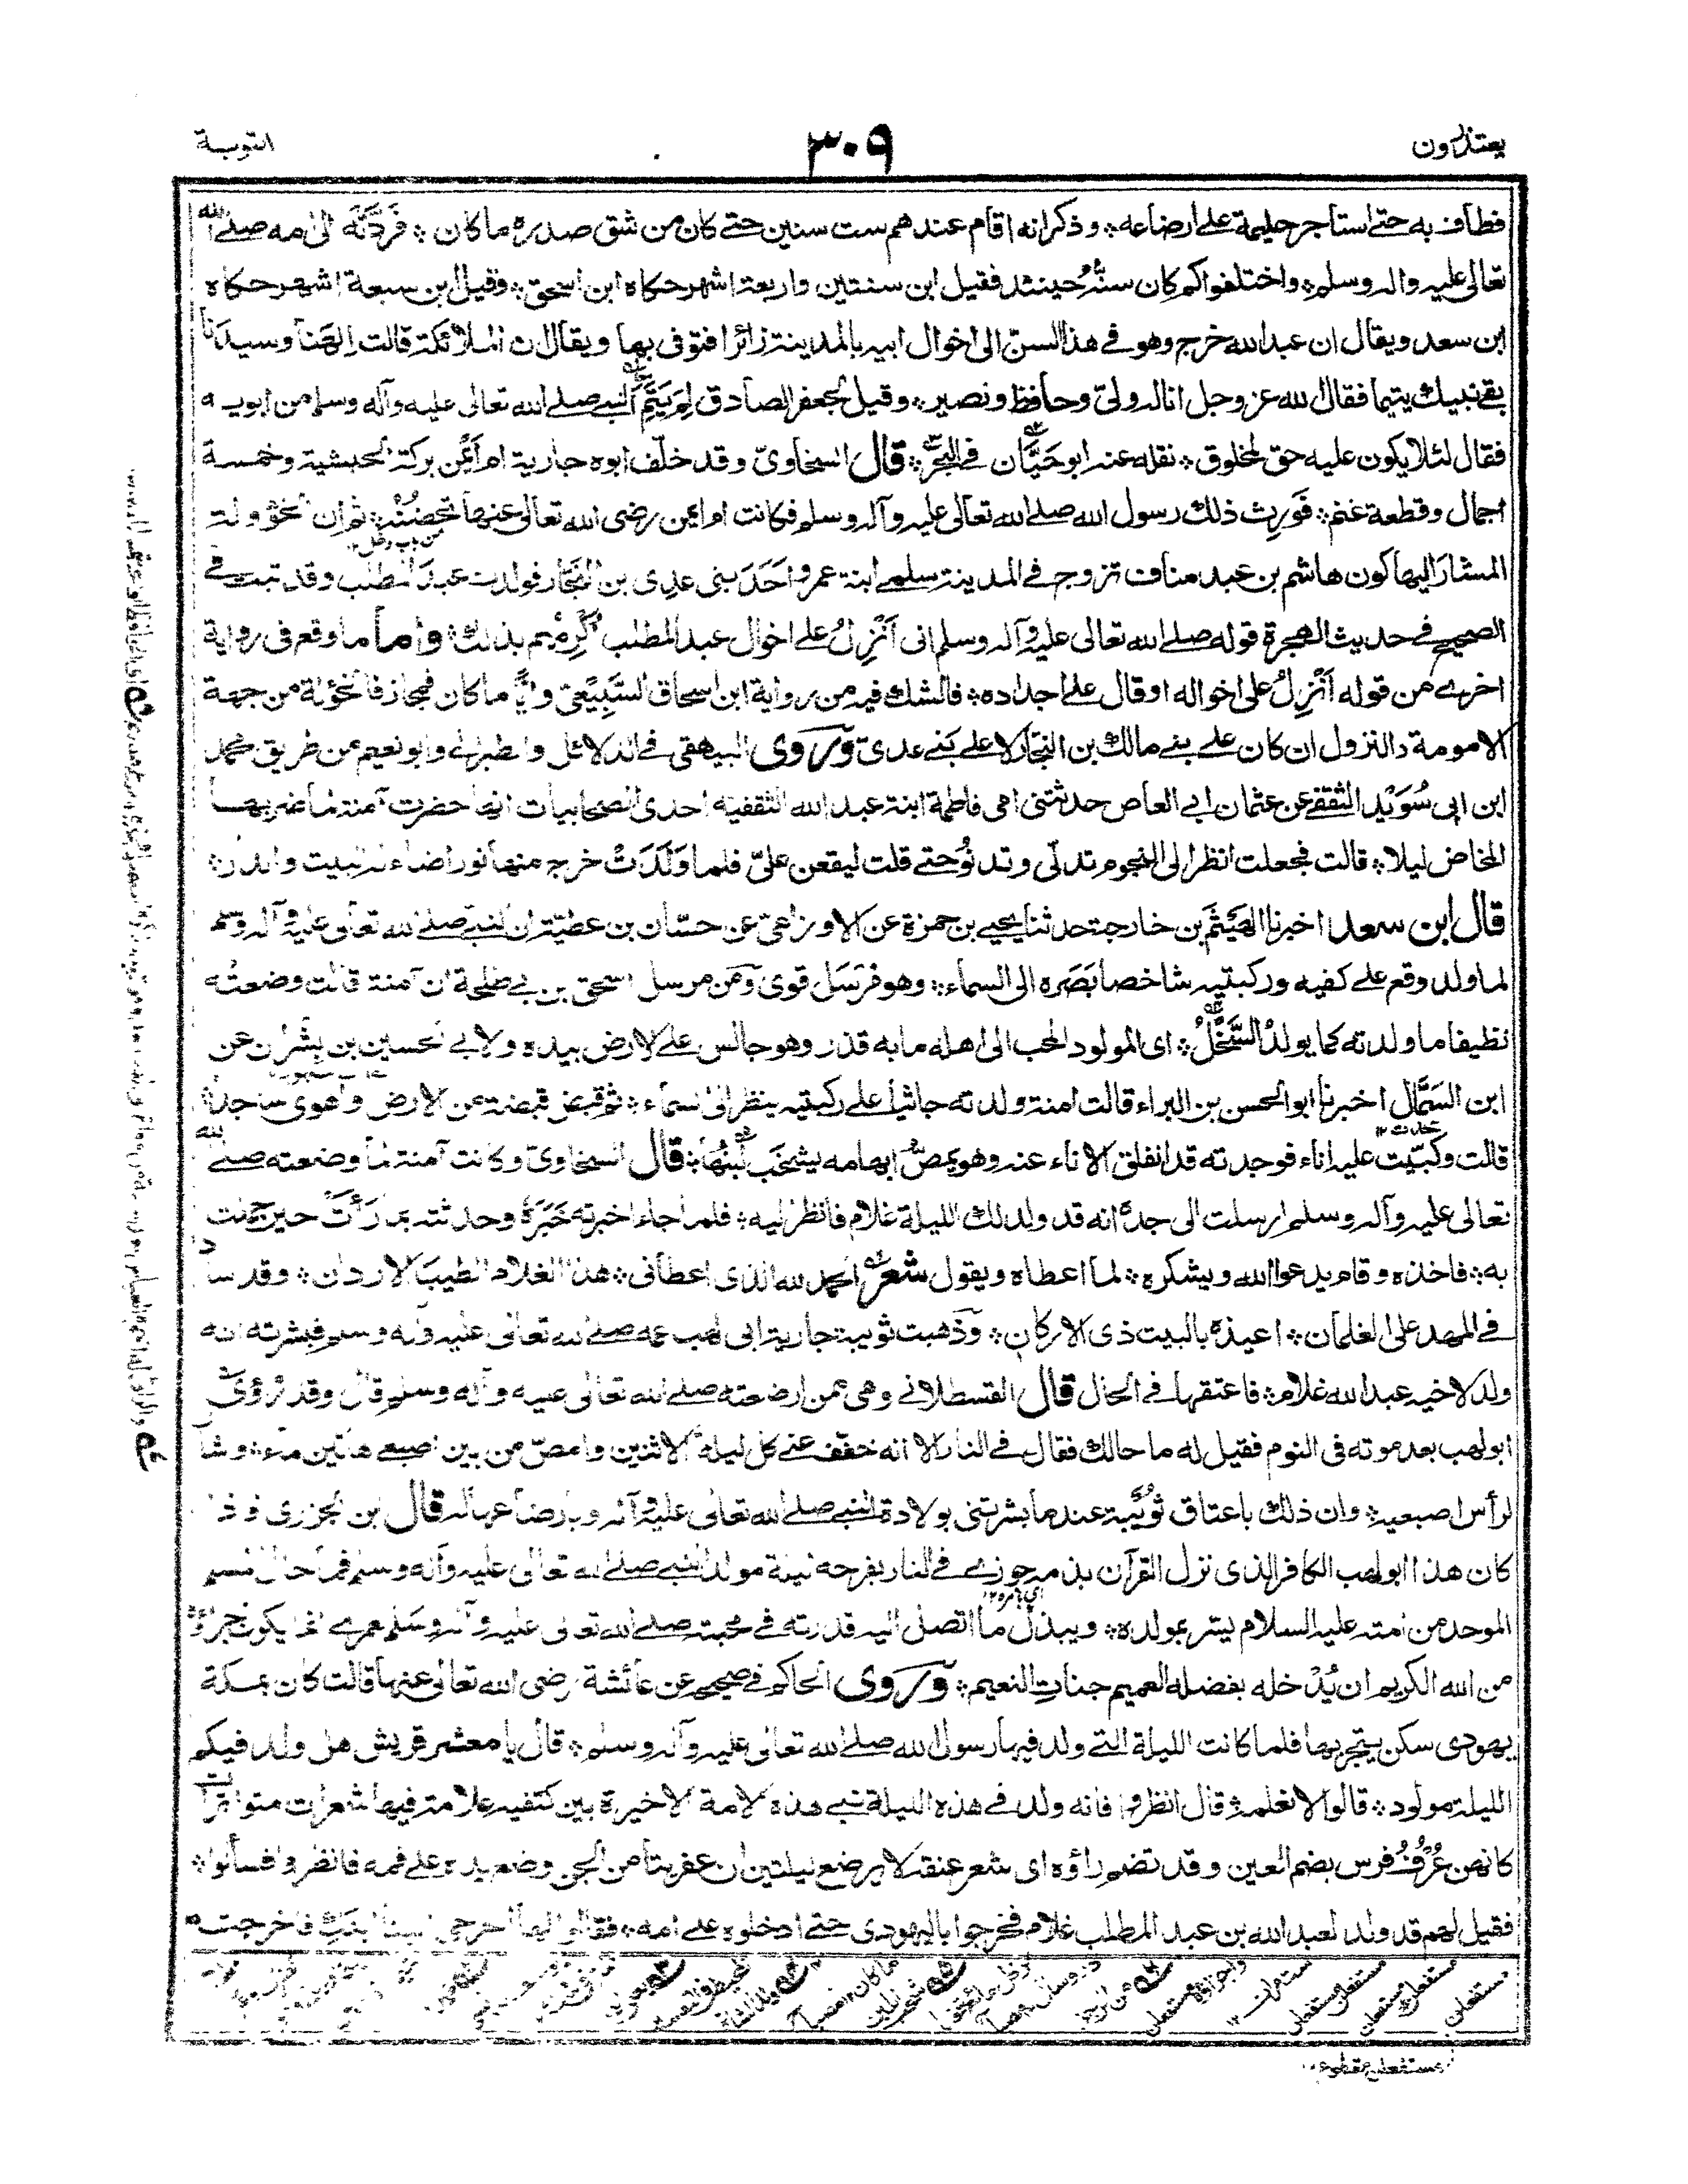 يعتذرون
٣٠٩
التوبة
فطاف به حتے استاجر حليمة علے ارضاعه ؞ وذكر انه اقام عندهم ست سنين حتے كان من شق صدره ما كان ؞ فَرَدَّتْه الى امه صلے الله
تعالى عليه واله وسلم ؞ واختلفوا كم كان سنُّه حينئذ فقيل ابن سنتين واربعة اشهر حكاه ابن اسحق ؞ وقيل ابن سبعة اشهر حكاه
ابن سعد ويقال ان عبد الله خرج وهو فے هذا السنّ الى اخوال ابيه بالمدينة زائرا فتوفى بها ويقال ان الملائكة قالت الهنا وسيدنا
بقے نبيك يتيما فقال الله عز وجل انا له ولىّ وحافظ ونصير ؞ وقيل لجعفر الصادق لِمَ يَتِمَ النبے صلے الله تعالى عليه وآله وسلم من ابويه
فقال لئلا يكون عليه حق لمخلوق ؞ نقله عنه ابو حَيَّان فے البحر ؞ قال السخاوىّ وقد خلّف ابوه جارية ام اَيْمَن بركة الحبشية وخمسة
اجمال وقطعة غنم ؞ فَوَرِث ذلك رسول الله صلے الله تعالى عليه وآله وسلم فكانت ام ايمن رضى الله تعالى عنها تحضُنُه ؞ ثم ان الخؤولة
المشار اليها كون هاشم بن عبد مناف تزوج فے المدينة سلمے ابنة عمرو اَحَدَ بنى عدِى بن النجار فولدت عبدَ المطلب وقد ثبت فے
الصحيح فے حديث الهجرة قوله صلے الله تعالى عليه وآله وسلم انى اَنْزِلُ علے اخوال عبد المطلب اُكْرِمُهم بذلك ؞ واما ما وقع فى رواية
اخرے من قوله اَنْزِلُ على اخواله او قال علے اجداده ؞ فالشك فيه من رواية ابن اسحاق السَّبِيْعى وايًّا ما كان فمجاز فالخؤلة من جهة
الامومة والنزول ان كان علے بنے مالك بن النجار لا علے بَنے عدىّ وروى البيهقى فے الدلائل والطبرانے وابو نعيم من طريق محمد
ابن ابى سُوَيْد الثقفے عن عثمان ابے العاص حدثتنى امى فاطمة ابنة عبد الله الثقفية احدى الصحابيات انها حضرت آمنة لما ضربها
المخاض ليلا ؞ قالت فجعلت انظر الى النجوم تدلّى وتدنُو حتے قلت ليقعن علىّ فلما وَلَدَتْ خرج منها نور اضاء له البيت والدار ؞
قال ابن سعد اخبرنا الهَيْثَم بن خارجة حدثنا يحيے بن حمزة عن الاوزاعى عن حسّان بن عطيّة ان النبے صلے الله تعالى عليه وآله وسلم
لما ولد وقع علے كفيه وركبتيه شاخصا بَصَره الى السماء ؞ وهو مُرْسَل قوى ومن مرسل اسحق بن ابے طلحة ان آمنة قالت وضعتُه
نظيفا ما ولدته كما يولدُ السَّخْلُ ؞ اى المولود المحب الى اهله ما به قذر وهو جالس علے الارض بيده ولابے الحسين بن بِشْران عن
ابن السَمَّاك اخبرنا ابو الحسن بن البراء قالت امنة ولدته جاثيا علے ركبتيه ينظر الى السماء ؞ ثم قبض قبضة من الارض واهوى ساجدا
قالت وكبّيت عليه اناء فوجدته قد انفلق الاناء عنه وهو يمصّ ابهامه يشخَب لَبنُها ؞ قال السخاوىّ وكانت آمنة لما وضعته صلے الله
تعالى عليه وآله وسلم ارسلت الى جدّه انه قد ولد لك الليلة غلام فانظر اليه ؞ فلما جاء اخبرته خَبَرَهُ وحدثته بما رَأَتْ حين حملت
به ؞ فاخذه وقام يدعوا الله ويشكره ؞ لما اعطاه ويقول شعر الحمد لله الذى اعطانى ؞ هذا الغلام الطيبَ الاردان ؞ وقد ساد
فے المهد على الغلمان ؞ اعيذه بالبيت ذى الاركان ؞ وذهبت ثويبة جارية ابى لهب عمه صلے الله تعالى عليه وآله وسلم فبشرته انه
ولد لاخيه عبد الله غلام ؞ فاعتقها فے الحال قال القسطلانے وهى ممن ارضعته صلے الله تعالى عليه وآله وسلم قال وقد رُؤىَ
ابو لهب بعد موته فى النوم فقيل له ما حالك فقال فے النار الا انه خفّف عنے كل ليلة الاثنين وامصّ من بين اصبعے هاتين ماء ؞ وشار
لرأس اصبعيه ؞ وان ذلك باعتاق ثُوَيْبة عند ما بشرتنى بولادة النبے صلے الله تعالى عليه وآله وبارضاعها له قال ابن الجزرى فاذا
كان هذا ابو لهب الكافر الذى نزل القرآن بذمه جوزے فے النار بفرحه ليلة مولد النبے صلے الله تعالى عليه وآله وسلم فما حال المسلم
الموحد من امته عليه السلام يسّر بمولده ؞ ويبذل ما اتصل اليه قدرته فے محبته صلے الله تعالى عليه وآله وسلم لعمرے انما يكون جزاؤه
من الله الكريم ان يُدْخله بفضله العميم جنات النعيم ؞ وروى الحاكم فے صحيحه عن عائشة رضى الله تعالى عنها قالت كان بمكة
يهودى سكن يتجر بها فلما كانت الليلة التے ولد فيها رسول الله صلے الله تعالى عليه وآله وسلم ؞ قال يا معشر قريش هل ولد فيكم
الليلة مولود ؞ قالوا لا نعلمه ؞ قال انظروا فانه ولد فے هذه الليلة نبے هذه الامة الاخيرة بين كتفيه علامة فيها شعرات متواترات
كانهن عُرْفُ فرس بضم العين وقد تضم راؤه اى شعر عنقه لا يرضع ليلتين ان عفريتا من الجن وضع يده علے فمه فانظروا فسألوا ؞
فقيل لهم قد ولد لعبد الله بن عبد المطلب غلام فخرجوا باليهودى حتے ادخلوه علے امه ؞ فقالوا لها اخرجى الينا ابنك فاخرجت
مستفعلن
مستفعلن مستفعلن
مستفعلن مستفعلن
مستفعلن مقطوع